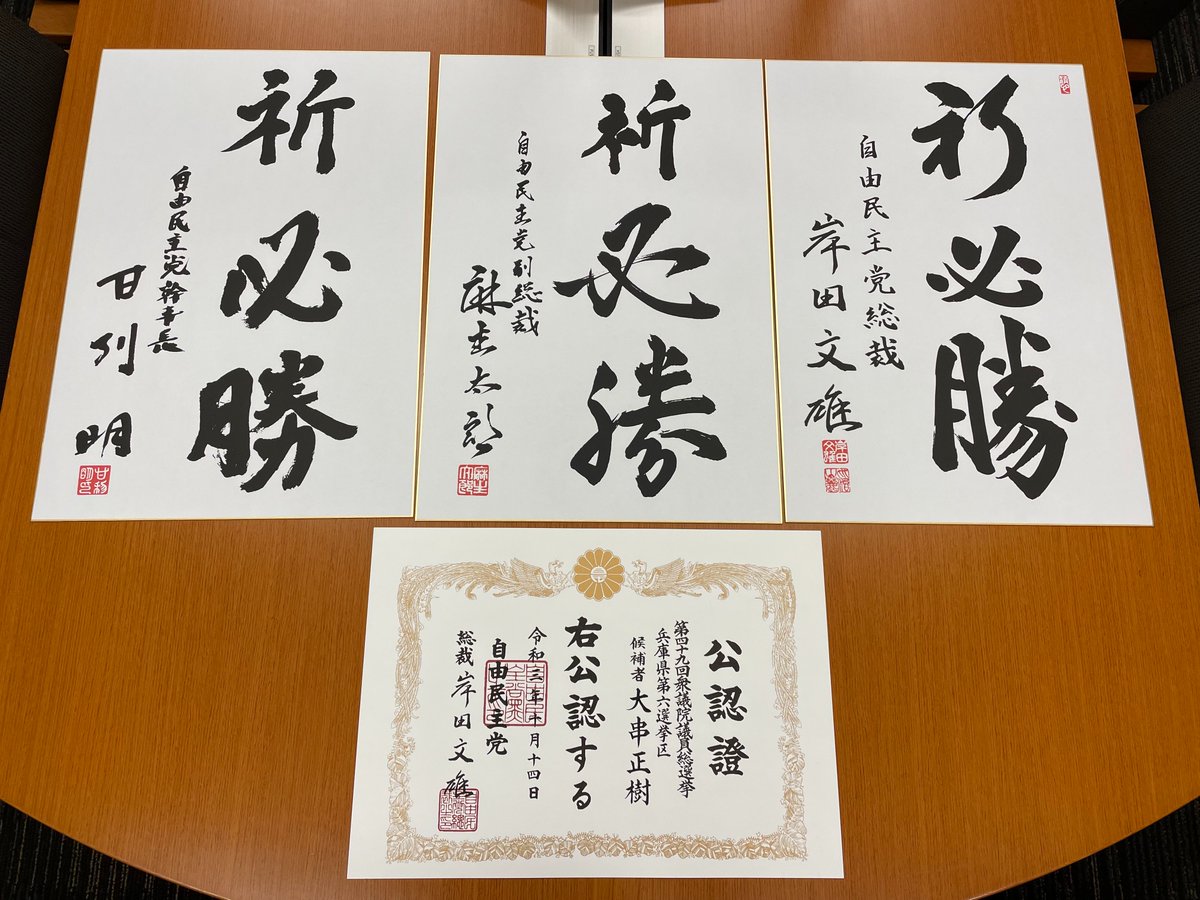 祈必勝
自由民主党総裁
岸田文雄
祈必勝
自由民主党副総裁
麻生太郎
祈必勝
自由民主党幹事長
甘利明
公認證
第四十九回衆議院議員総選挙
兵庫県第六選挙区
候補者 大串正樹
右公認する
令和三年十月十四日
自由民主党
総裁 岸田文雄